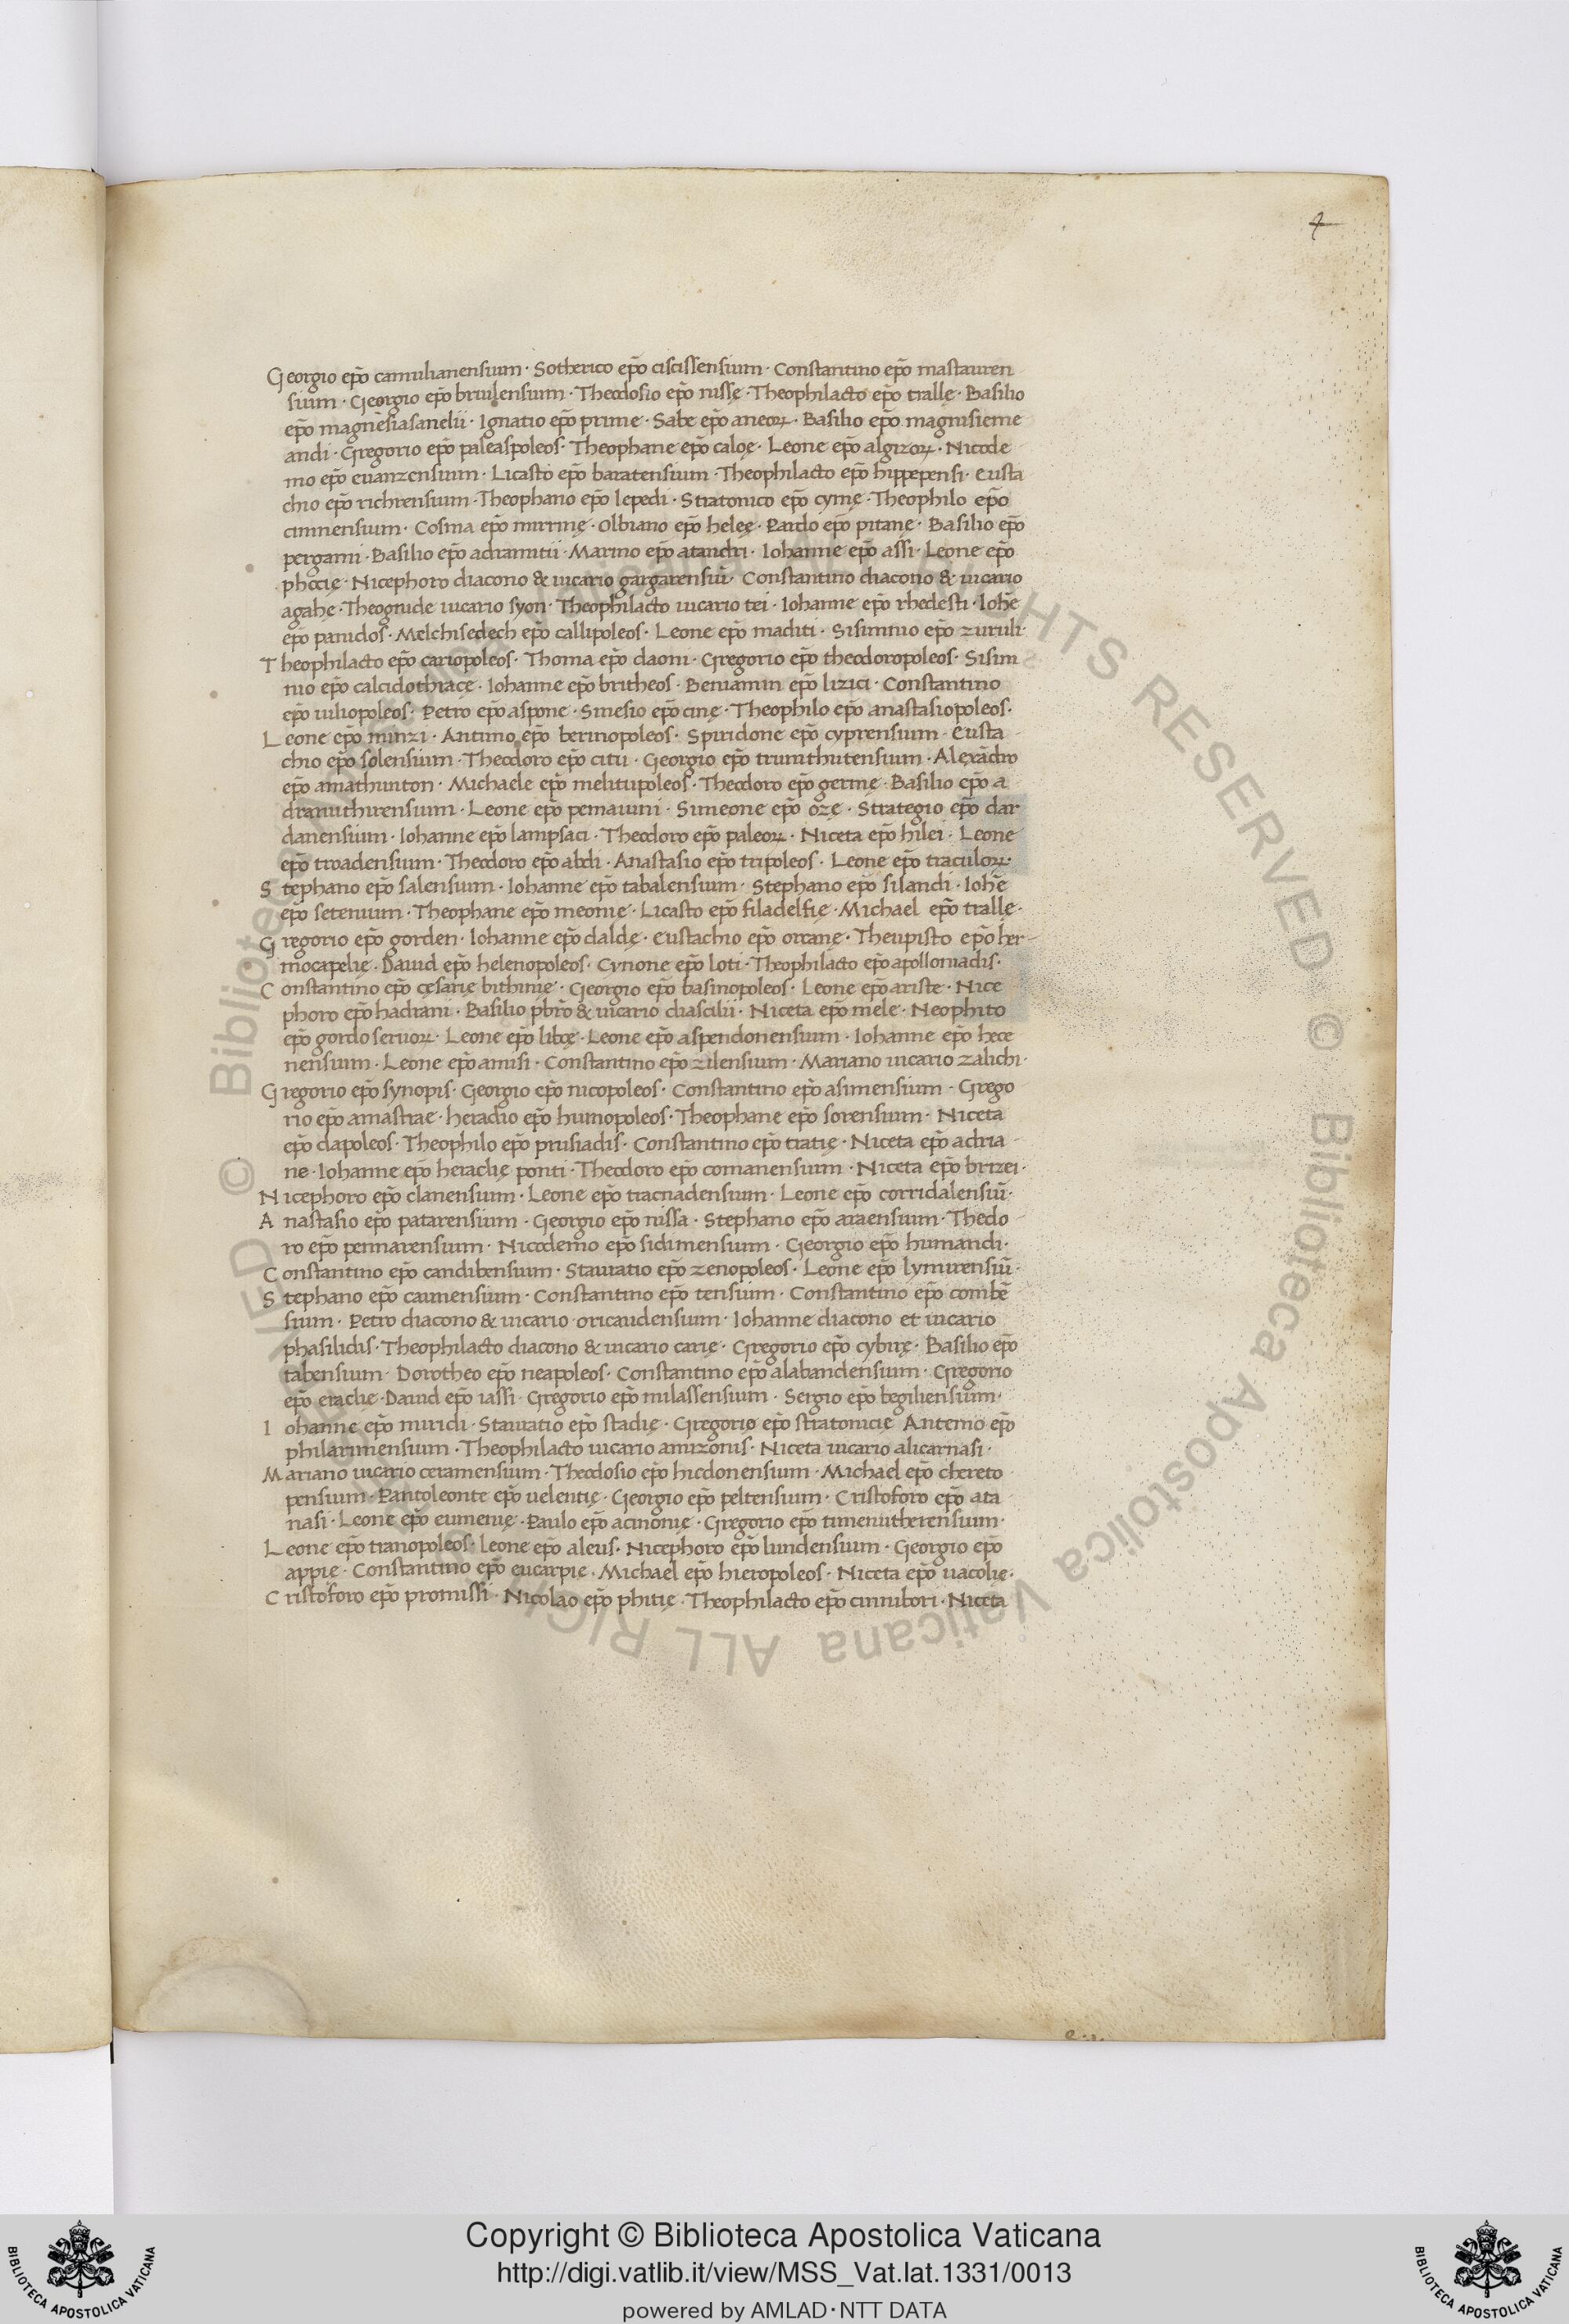 4
Georgio ep̃o camulianensium · Sotherico ep̃o ciscissensium · Constantino ep̃o mastauren
sium · Georgio ep̃o briulensium · Theodosio ep̃o nissę · Theophilacto ep̃o trallę · Basilio
ep̃o magnesiasanelii · Ignatio ep̃o prime · Sabe ep̃o aneoꝝ · Basilio ep̃o magnisieme
andi · Gregorio ep̃o paleaspoleos · Theophane ep̃o caloę · Leone ep̃o algizoꝝ · Nicode
mo ep̃o euanzensium · Licasto ep̃o baratensium · Theophilacto ep̃o hippepensi · Eusta
chio ep̃o richrensium · Theophano ep̃o lepedi · Stratonico ep̃o cymę · Theophilo ep̃o
cimnensium · Cosma ep̃o mirrinę · Olbiano ep̃o heleę · Pardo ep̃o pitanę · Basilio ep̃o
pergami · Basilio ep̃o adramitii · Marino ep̃o atandri · Iohanne ep̃o assi · Leone ep̃o
phocię · Nicephoro diacono & uicario gargarensiũ · Constantino diacono & uicario
agahę · Theognide uicario syon · Theophilacto uicario tei · Iohanne ep̃o rhedesti · Ioh̃e
ep̃o panidos · Melchisedech ep̃o callipoleos · Leone ep̃o maditi · Sisinnio ep̃o zuruli ·
Theophilacto ep̃o cariopoleos · Thoma ep̃o daoni · Gregorio ep̃o theodoropoleos · Sisin
nio ep̃o calcidothracę · Iohanne ep̃o britheos · Beniamin ep̃o lizici · Constantino
ep̃o iuliopoleos · Petro ep̃o aspone · Sinesio ep̃o cinę · Theophilo ep̃o anastasiopoleos ·
Leone ep̃o minzi · Antimo ep̃o berinopoleos · Spiridone ep̃o cyprensium · Eusta
chio ep̃o solensium · Theodoro ep̃o citii · Georgio ep̃o trimthutensium · Alexãdro
ep̃o amathunton · Michaele ep̃o melitupoleos · Theodoro ep̃o germę · Basilio ep̃o a
dranuthirensium · Leone ep̃o pemauini · Simeone ep̃o ozę · Strategio ep̃o dar
danensium · Iohanne ep̃o lampsaci · Theodoro ep̃o paleoꝝ · Niceta ep̃o hilei · Leone
ep̃o troadensium · Theodoro ep̃o abdi · Anastasio ep̃o tripoleos · Leone ep̃o traculoꝝ ·
Stephano ep̃o salensium · Iohanne ep̃o tabalensium · Stephano ep̃o silandi · Ioh̃e
ep̃o setenium · Theophane ep̃o meonię · Licasto ep̃o filadelfię · Michael ep̃o trallę ·
Gregorio ep̃o gorden · Iohanne ep̃o daldę · Eustachio ep̃o orcanę · Theupisto ep̃o her
mocapelię · Dauid ep̃o helenopoleos · Cynone ep̃o loti · Theophilacto ep̃o apolloniadis ·
Constantino ep̃o cęsarię bithinię · Georgio ep̃o basinopoleos · Leone ep̃o ariste · Nice
phoro ep̃o hadrani · Basilio pb̃ro & uicario diascilii · Niceta ep̃o mele · Neophito
ep̃o gordoseruoꝝ · Leone ep̃o libę · Leone ep̃o aspendonensium · Iohanne ep̃o hece
nensium · Leone ep̃o amisi · Constantino ep̃o zilensium · Mariano uicario zalichi ·
Gregorio ep̃o synopis · Georgio ep̃o nicopoleos · Constantino ep̃o asimensium · Grego
rio ep̃o amastrae · heraclio ep̃o humopoleos · Theophane ep̃o sorensium · Niceta
ep̃o dapoleos · Theophilo ep̃o prusiadis · Constantino ep̃o cratię · Niceta ep̃o adria
ne · Iohanne ep̃o heraclię ponti · Theodoro ep̃o comanensium · Niceta ep̃o brizei ·
Nicephoro ep̃o clanensium · Leone ep̃o tracnadensium · Leone ep̃o corridalensiũ ·
Anastasio ep̃o patarensium · Georgio ep̃o nissa · Stephano ep̃o araensium · Thedo
ro ep̃o pennarensium · Nicodemo ep̃o sidimensium · Georgio ep̃o humandi ·
Constantino ep̃o candibensium · Stauratio ep̃o zenopoleos · Leone ep̃o lymirensiũ ·
Stephano ep̃o caunensium · Constantino ep̃o tensium · Constantino ep̃o combẽ
sium · Petro diacono & uicario oricaudensium · Iohanne diacono et uicario
phasilidis · Theophilacto diacono & uicario carię · Gregorio ep̃o cybirę · Basilio ep̃o
tabensium · Dorotheo ep̃o neapoleos · Constantino ep̃o alabandensium · Gregorio
ep̃o eraclię · Dauid ep̃o iassi · Gregorio ep̃o milassensium · Sergio ep̃o begiliensium ·
Iohanne ep̃o miridi · Stauratio ep̃o stadię · Gregorio ep̃o stratonicię Antemo ep̃o
philarimensium · Theophilacto uicario amizonis · Niceta uicario alicarnasi ·
Mariano uicario ceramensium · Theodosio ep̃o hiedonensium · Michael ep̃o chereto
pensium · Pantoleonte ep̃o uelentię · Georgio ep̃o peltensium · Cristoforo ep̃o ata
nasi · Leone ep̃o eumenię · Paulo ep̃o acmonię · Gregorio ep̃o timenutherensium ·
Leone ep̃o tranopoleos · Leone ep̃o aleus · Nicephoro ep̃o lundensium · Georgio ep̃o
appię · Constantino ep̃o eucarpie · Michael ep̃o hieropoleos · Niceta ep̃o uacolię ·
Cristoforo ep̃o promissi · Nicolao ep̃o phitię · Theophilacto ep̃o cinnibori · Niceta
© Biblioteca Apostolica Vaticana ALL RIGHTS RESERVED
Copyright © Biblioteca Apostolica Vaticana
http://digi.vatlib.it/view/MSS_Vat.lat.1331/0013
powered by AMLAD·NTT DATA
BIBLIOTECA APOSTOLICA VATICANA
BIBLIOTECA APOSTOLICA VATICANA